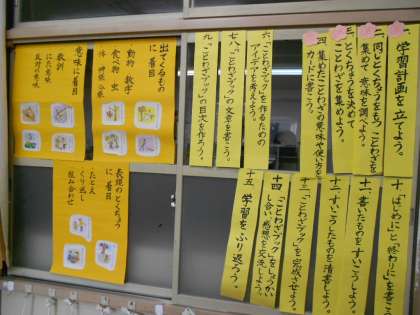 一 学習計画を立てよう。
二 同じとくちょうをもつことわざを
集めて、意味を調べよう。
三 とくちょうを決めて
ことわざを集めよう。
四 集めたことわざの意味や使い方を
カードに書こう。
六 「ことわざブック」を作るための
アイデアを考えよう。
七・八 「ことわざブック」の文章を書こう。
九 「ことわざブック」の目次を作ろう。
十 「はじめに」と「終わりに」を書こう
十一 書いたものをすいこうしよう。
十二 すいこうしたものを清書しよう。
十三 「ことわざブック」を完成させよう。
十四 「ことわざブック」をしょうかい
し合い、感想を交流しよう。
十五 学習をふり返ろう。
出てくるもの
に着目
動物 数字
食べ物 虫
体 神様・仏様
意味に着目
教訓
にた意味
反対の意味
表現のとくちょう
に着目
たとえ
くり返し
組み合わせ